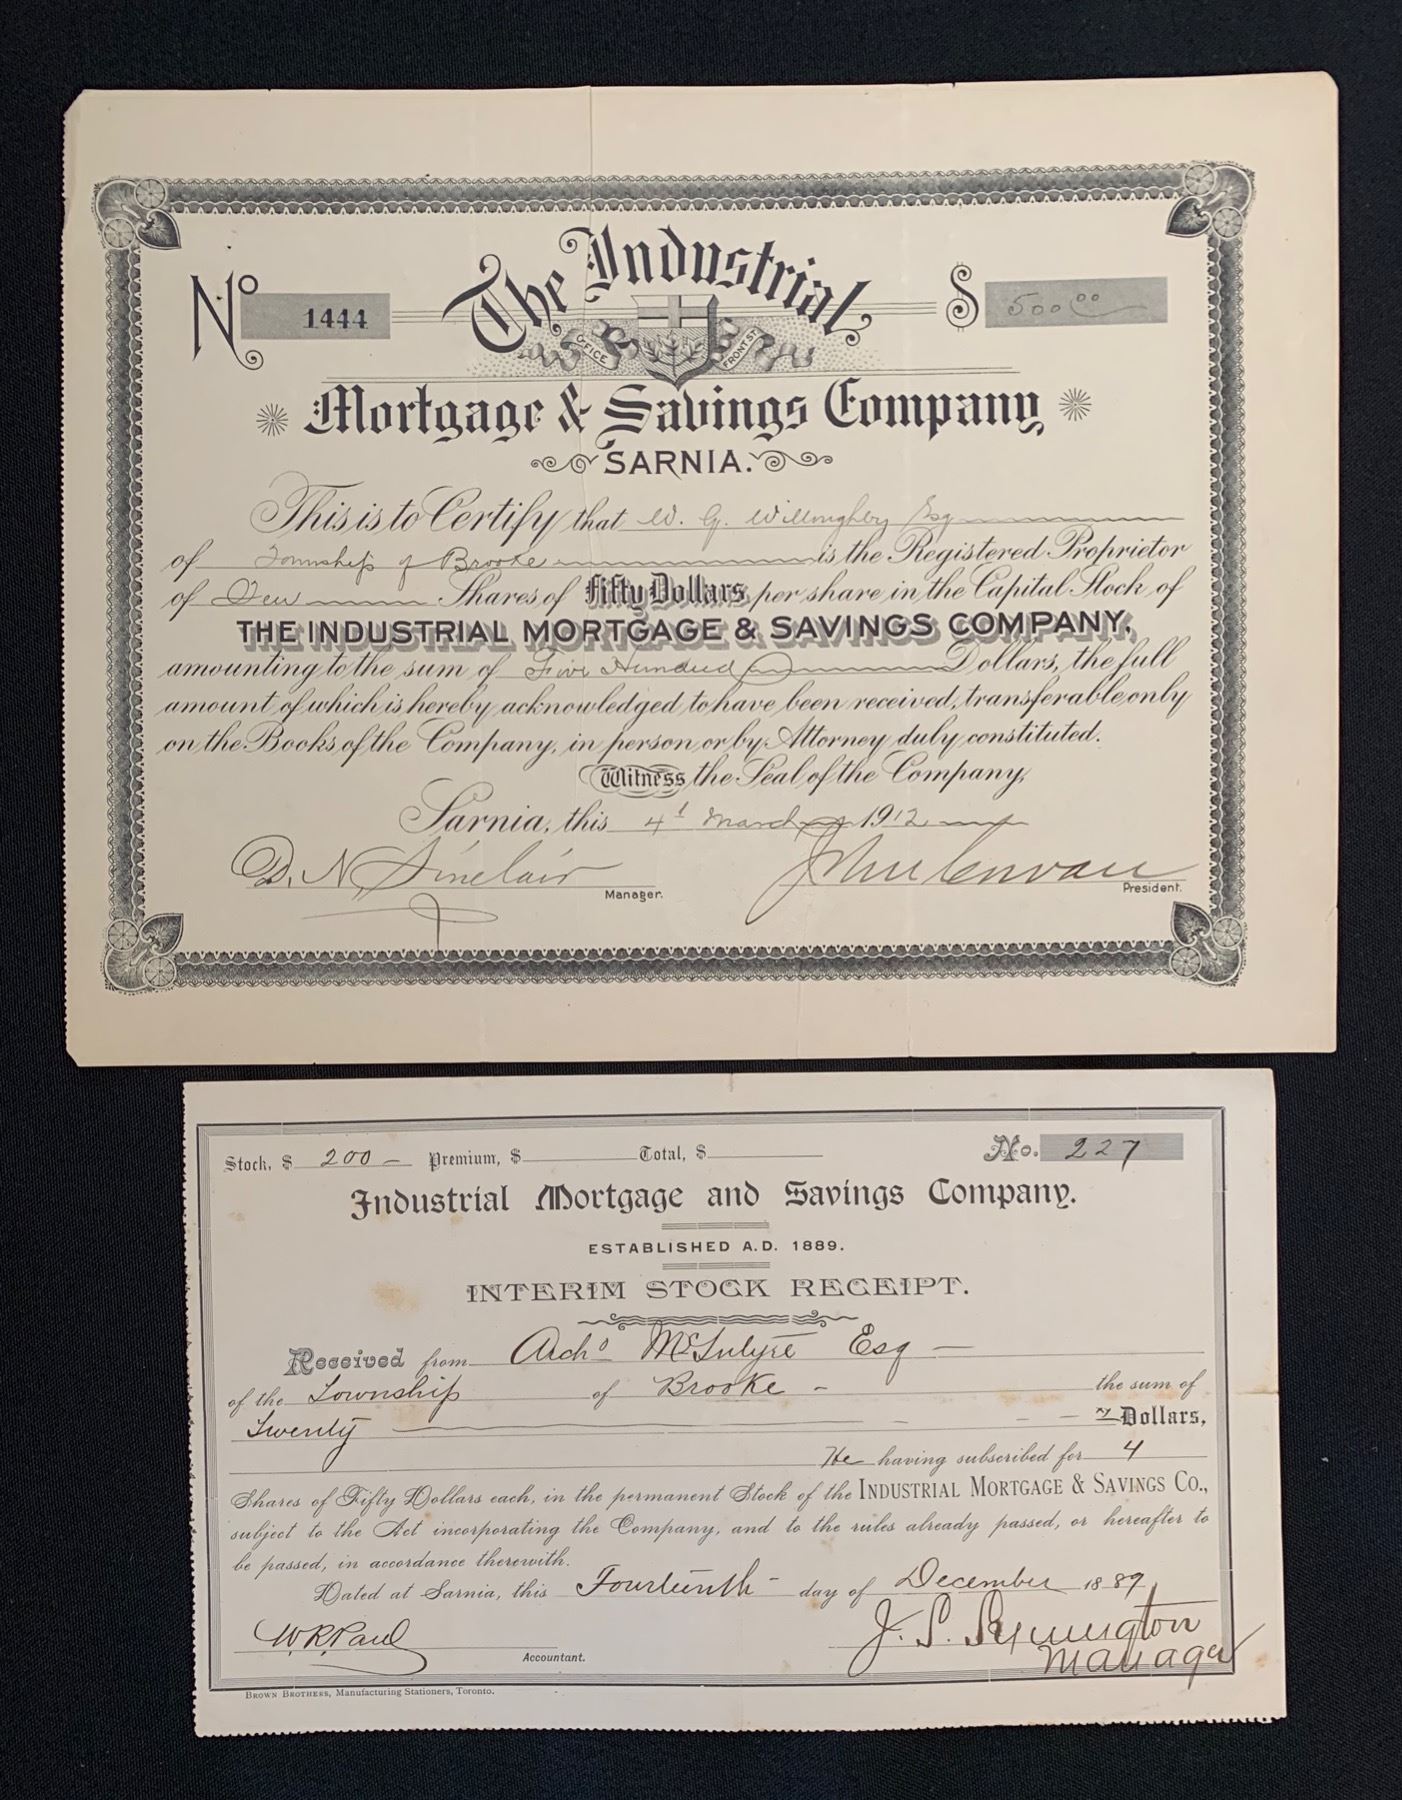 No 1444 The Industrial $ 500.00
OFFICE FRONT ST
Mortgage & Savings Company
SARNIA.
This is to Certify that W. G. Willoughby Esq
of Township of Brooke is the Registered Proprietor
of Ten Shares of Fifty Dollars per share in the Capital Stock of
THE INDUSTRIAL MORTGAGE & SAVINGS COMPANY,
amounting to the sum of Five Hundred Dollars, the full
amount of which is hereby acknowledged to have been received, transferable only
on the Books of the Company, in person or by Attorney duly constituted.
Witness the Seal of the Company,
Sarnia, this 4t March 1912
D. N. Sinclair
Manager. President.
Stock, $ 200 - Premium, $ Total, $ No. 227
Industrial Mortgage and Savings Company.
ESTABLISHED A.D. 1889.
INTERIM STOCK RECEIPT.
Received from Archd McIntyre Esq -
of the Township of Brooke - the sum of
Twenty Dollars,
He having subscribed for 4
Shares of Fifty Dollars each, in the permanent Stock of the INDUSTRIAL MORTGAGE & SAVINGS CO.,
subject to the Act incorporating the Company, and to the rules already passed, or hereafter to
be passed, in accordance therewith.
Dated at Sarnia, this Fourteenth - day of December 1889
W. R. Paul J. S. Symington
Accountant. Manager
BROWN BROTHERS, Manufacturing Stationers, Toronto.